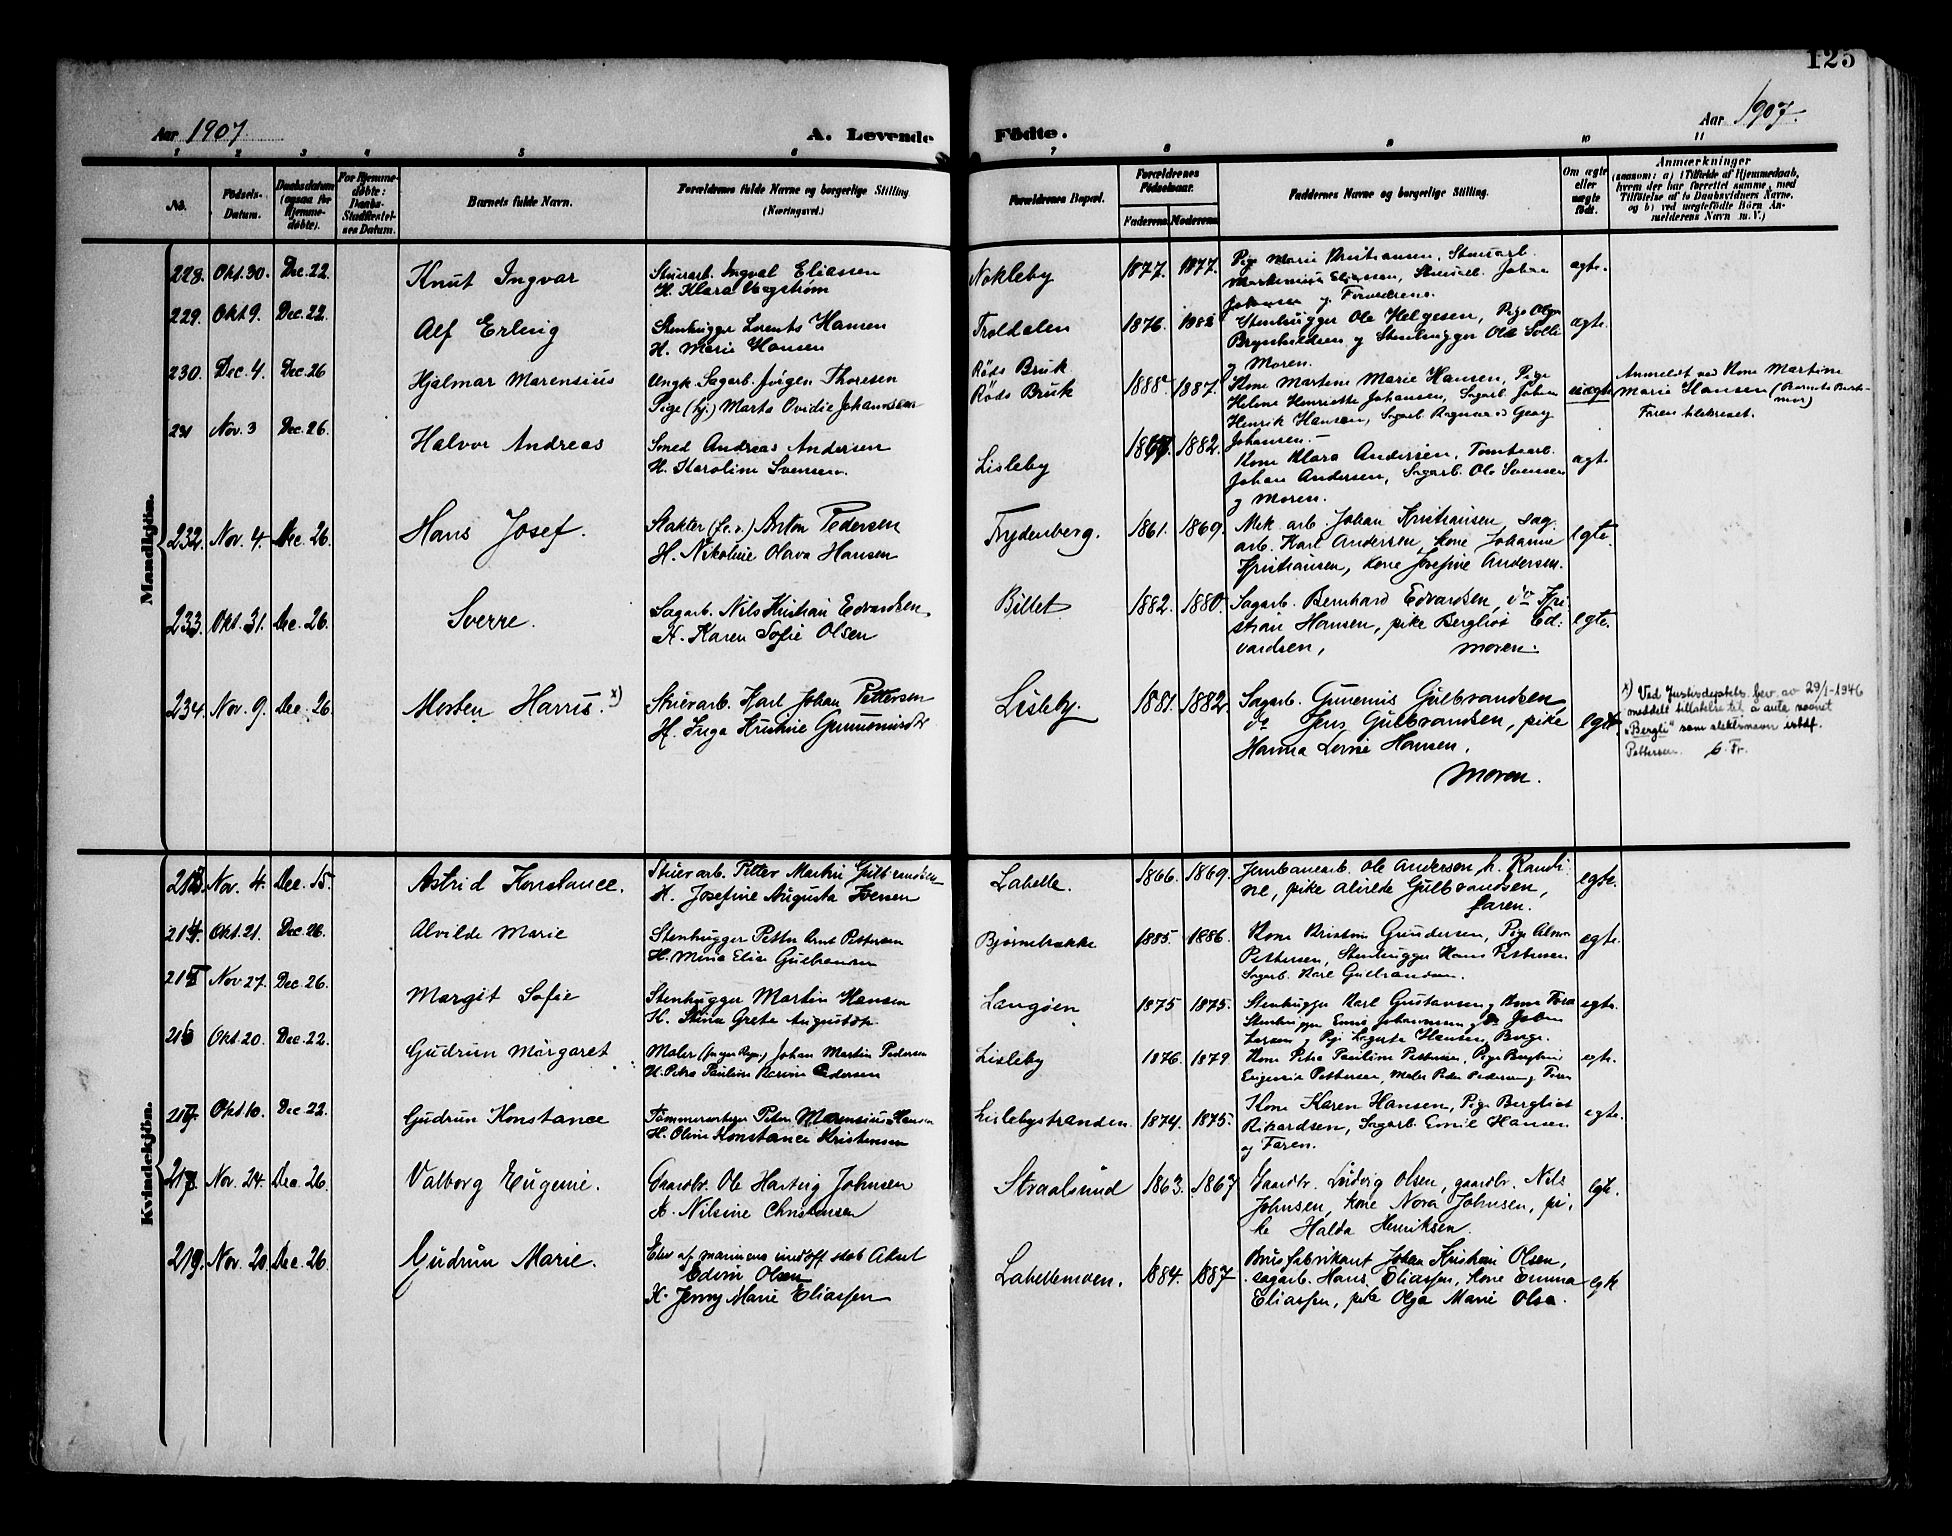 125
Aar 1907
A. Levende Födte.
Aar 1907.
1 2 3 4 5 6 7 8 9 10 11
No.
Födsels-
Datum.
Daabsdatum
(ogsaa for
Hjemme-
döbte).
For Hjemme-
döbte:
Daabs-
Stadfæstel-
ses Datum.
Barnets fulde Navn.
Forældrenes fulde Navne og borgerlige Stilling
(Næringsvei.)
Forældrenes Bopæl.
Forældrenes
Födselsaar.
Faderens Moderens
Faddernes Navne og borgerlige Stilling.
Om ægte
eller
uægte
födt.
Anmærkninger
(saasom: a) i Tilfælde af Hjemmedaab,
hvem der har forrettet samme, med
Tilföielse af to Daabsvidners Navne,
og b) ved uægtefödte Börn An-
melderens Navn m. V.)
Mandkjön.
228. Okt. 30. Dec. 22.
Knut Ingvar
Ingval Eliassen
H. Klara
Nokleby
1877. 1877.
Pige Marie Kristiansen,
Martinius Eliassen, Johan
Johansen og Forældrene.
ægte.
229. Okt 9. Dec. 22.
Alf Erling
Stenhugger Lorents Hansen
H. Marie Hansen
Troldalen
1876. 1882
Stenhugger Ole Helgesen, Pige Olga
Brynhildsen og Stenhugger Ole Solli
og Moren.
ægte.
230. Dec. 4. Dec. 26
Hjalmar Marensius
Ungk. Sagarb. Jörgen Thoresen
Pige (hj.) Marta Ovidie Johannsen
Röds Bruk
Röds Bruk
1888 1887.
Kone Martine Marie Hansen, Pige
Helene Henriette Johansen, Sagarb. Johan
Henrik Hansen, Sagarb. Ragnvald Georg
Johansen.
uægte
Anmeldt ved Kone Martine
Marie Hansen (Barnets Beste-
mor)
Faren tilstedet.
231 Nov. 3 Dec. 26.
Halvor Andreas
Smed Andreas Andersen
H. Karoline Svensen.
Lisleby
1882.
Kone Klara Andersen, Tomtearb.
Johan Andersen, Sagarb. Ole Svensen
og Moren.
ægt.
232. Nov. 4. Dec. 26.
Hans Josef.
Slakter Anton Pedersen
H. Nikoline Olava Hansen
Frydenberg.
1861. 1869.
Mek. arb. Johan Kristiansen, sag.
arb. Karl Andersen, kone Johanne
Kristiansen, kone Josefine Andersen.
egte.
233. Okt. 31. Dec. 26.
Sverre.
Sagarb. Nils Kristian Edvardsen
H. Karen Sofie Olsen
Billet
1882. 1880.
Sagarb. Bernhard Edvardsen, do Kri-
stian Hansen, pike Bergliot Ed-
vardsen, moren.
egte.
234. Nov. 9. Dec. 26.
Morten Harris. x)
Stuerarb. Karl Johan Pettersen
H. Inga Kristine
Lisleby.
1881. 1882.
Sagarb. Gulbrandsen
do Jens Gulbrandsen, pike
Hanna Hansen,
moren.
egte.
x) Ved Justisdepts. bev. av 29/1-1946
meddelt tillatelse til å anta navnet
"Bergli" som slektsnavn istdf.
Pettersen.
Kvindekjön.
213. Nov. 4. Dec. 15.
Astrid Konstance.
Stuerarb. Petter Martin Gulbrandsen
H. Josefine Augusta Iversen
Labelle.
1866. 1869.
Jernbanearb. Ole Andersen, h. Randi-
ne, pike Alvilde Gulbrandsen,
faren.
egte.
214. Okt. 21. Dec. 26.
Alvilde Marie
Stenhugger Petter Arnt Pettersen
H. Mina Elise Gulbrandsen
Bjørnebrække
1885. 1886.
Kone Kristine Gundersen, Pige Alma
Pettersen, Stenhugger Hans Pettersen
Sagarb. Karl Gulbrandsen.
egte.
215 Nov 27. Dec 26.
Margit Sofie
Stenhugger Martin Hansen
H. Stina Greta Augustsdr.
Langøen
1875 1875.
Stenhugger Karl Gustavsen og Kone
Stenhugger Johannesen og do Johan
Larsen og Pige Hansen,
egte.
216 Okt. 20. Dec. 22.
Gudrun Margaret
Maler Johan Martin Pedersen
H. Petra Pauline Pedersen
Lisleby
1876. 1879.
Kone Petra Pauline Pettersen, Pige
Eugenie Pettersen, Maler Peder Pedersen og Faren
egte.
217. Okt 10. Dec 22.
Gudrun Konstance
Peter Marensius Hansen
H. Oline Konstance Kristensen
Lislebystranden.
1874. 1875.
Kone Karen Hansen, Pige Bergliot
Rikardsen, Sagarb. Emil Hansen
og Faren.
egte.
218. Nov. 24. Dec. 26.
Valborg Eugenie.
Gaardbr. Ole Hartvig Johnsen
H. Nilsine Christensen
Straalsund
1863. 1867
Gaardbr. Ludvig Olsen, gaardbr. Nils
Johnsen, kone Nora Johnsen, pi-
ke Halda Henriksen.
egte.
219. Nov. 20. Dec. 26.
Gudrun Marie.
Elev af marinens underoff. skole Aksel
Edvin Olsen
H. Jenny Marie Eliassen
Labellemoen.
1884. 1887
Brusfabrikant Johan Kristian Olsen,
sagarb. Hans Eliassen, kone Emma
Eliassen, pike Olga Marie Olsen.
egte